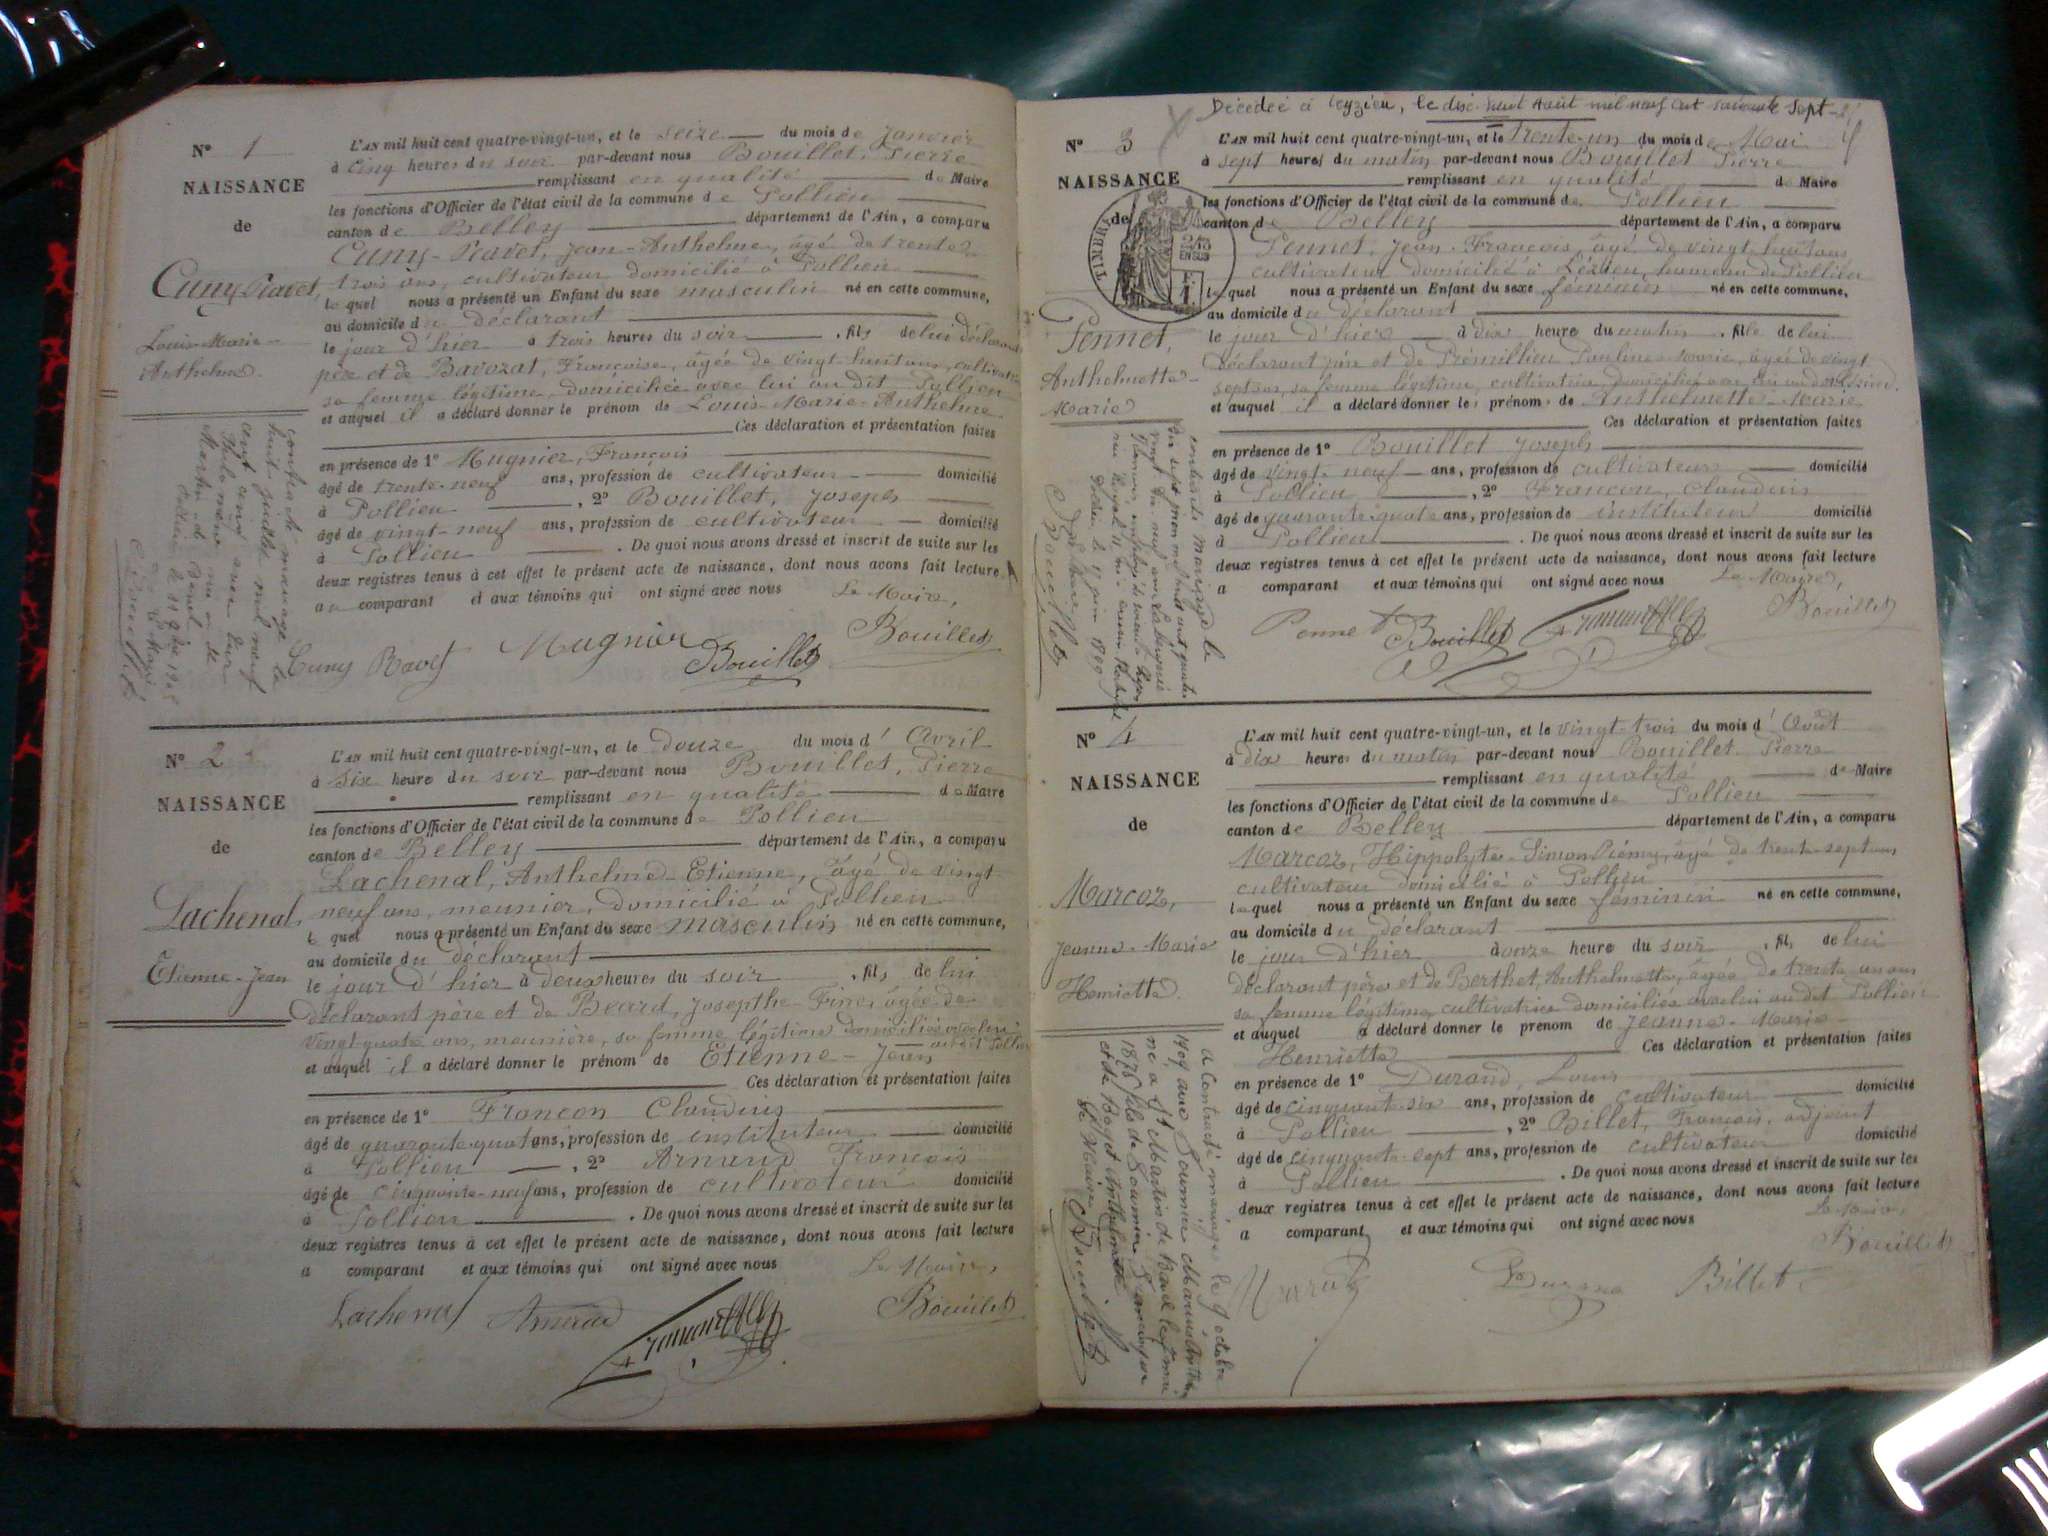 N° 1
NAISSANCE
de
Cuny-Ravet,
Louis-Marie-
Anthelme.
L'AN mil huit cent quatre-vingt-un, et le seize du mois de Janvier
à cinq heures du soir par-devant nous Bouillet, Pierre
remplissant en qualité de Maire
les fonctions d'Officier de l'état civil de la commune de Pollieu
canton de Belley département de l'Ain, a comparu
Cuny-Ravet, Jean-Anthelme, âgé de trente
trois ans, cultivateur domicilié à Pollieu
lequel nous a présenté un Enfant du sexe masculin né en cette commune,
au domicile du déclarant
le jour d'hier à trois heures du soir, fils de lui déclarant
père et de Bavozat, Françoise, âgée de vingt-huit ans, cultivatrice
sa femme légitime, domiciliée avec lui au dit Pollieu
et auquel il a déclaré donner le prénom de Louis-Marie-Anthelme
Ces déclaration et présentation faites
en présence de 1° Mugnier, François
âgé de trente-neuf ans, profession de cultivateur domicilié
à Pollieu, 2° Bouillet, Joseph
âgé de vingt-neuf ans, profession de cultivateur domicilié
à Pollieu. De quoi nous avons dressé et inscrit de suite sur les
deux registres tenus à cet effet le présent acte de naissance, dont nous avons fait lecture
au comparant et aux témoins qui ont signé avec nous Le Maire,
Cuny Ravet Mugnier Bouillet Bouillet
contracté mariage le
huit juillet mil neuf
cent cinq avec
Philomène
Martin de
N° 2
NAISSANCE
de
Lachenal
Etienne-Jean
L'AN mil huit cent quatre-vingt-un, et le douze du mois d'Avril
à six heure du soir par-devant nous Bouillet, Pierre
remplissant en qualité de Maire
les fonctions d'Officier de l'état civil de la commune de Pollieu
canton de Belley département de l'Ain, a comparu
Lachenal, Anthelme-Etienne, âgé de vingt
neuf ans, meunier, domicilié à Pollieu
le quel nous a présenté un Enfant du sexe masculin né en cette commune,
au domicile du déclarant
le jour d'hier à deux heures du soir, fils de lui
déclarant père et de Béard, Josepthe-Fine, âgée de
vingt-quatre ans, meunière, sa femme légitime domiciliée avec lui
au dit Pollieu
et auquel il a déclaré donner le prénom de Etienne-Jean
Ces déclaration et présentation faites
en présence de 1° Françon Claudius
âgé de quarante-quatre ans, profession de instituteur domicilié
à Pollieu, 2° Arnaud François
âgé de cinquante-neuf ans, profession de cultivateur domicilié
à Pollieu. De quoi nous avons dressé et inscrit de suite sur les
deux registres tenus à cet effet le présent acte de naissance, dont nous avons fait lecture
a comparant et aux témoins qui ont signé avec nous Le Maire,
Lachenal Arnaud Bouillet
Décédée à Leyzieu, le dix-huit Août mil neuf cent soixante sept
N° 3
NAISSANCE
de
Pennet,
Anthelmette-
Marie
TIMBRE
25
EN SUS
L'AN mil huit cent quatre-vingt-un, et le trente-un du mois de Mai
à sept heures du matin par-devant nous Bouillet Pierre
remplissant en qualité de Maire
les fonctions d'Officier de l'état civil de la commune de Pollieu
canton de Belley département de l'Ain, a comparu
Pennet, Jean-François, âgé de vingt-huit ans
cultivateur domicilié à Leyzieu, hameau de Pollieu
lequel nous a présenté un Enfant du sexe féminin né en cette commune,
au domicile du déclarant
le jour d'hier à dix heure du matin, fille de lui
déclarant père et de Prémillieu Pauline-Marie, âgée de vingt
sept ans, sa femme légitime, cultivatrice, domiciliée avec lui au dit
et auquel il a déclaré donner les prénoms de Anthelmette-Marie
Ces déclaration et présentation faites
en présence de 1° Bouillet Joseph
âgé de vingt-neuf ans, profession de cultivateur domicilié
à Pollieu, 2° Françon, Claudius
âgé de quarante-quatre ans, profession de instituteur domicilié
à Pollieu. De quoi nous avons dressé et inscrit de suite sur les
deux registres tenus à cet effet le présent acte de naissance, dont nous avons fait lecture
a comparant et aux témoins qui ont signé avec nous Le Maire,
Pennet Bouillet Bouillet
contracté mariage le
N° 4
NAISSANCE
de
Marcoz,
Jeanne-Marie
Henriette.
L'AN mil huit cent quatre-vingt-un, et le vingt-trois du mois d'Août
à dix heures du matin par-devant nous Bouillet Pierre
remplissant en qualité de Maire
les fonctions d'Officier de l'état civil de la commune de Pollieu
canton de Belley département de l'Ain, a comparu
Marcoz, Hippolyte-Simon, âgé de trente-sept ans
cultivateur domicilié à Pollieu
lequel nous a présenté un Enfant du sexe féminin né en cette commune,
au domicile du déclarant
le jour d'hier à onze heure du soir, fil de lui
déclarant père et de Berthet, Anthelmette, âgée de trente-un ans
sa femme légitime, cultivatrice domiciliée avec lui au dit Pollieu
et auquel a déclaré donner le prénom de Jeanne-Marie-
Henriette Ces déclaration et présentation faites
en présence de 1° Durand, Louis
âgé de cinquante-six ans, profession de cultivateur domicilié
à Pollieu, 2° Billet, François, adjoint
âgé de cinquante-sept ans, profession de cultivateur domicilié
à Pollieu. De quoi nous avons dressé et inscrit de suite sur les
deux registres tenus à cet effet le présent acte de naissance, dont nous avons fait lecture
a comparant et aux témoins qui ont signé avec nous Le Maire,
Marcoz Durand Billet Bouillet
a contracté mariage le 9 octobre
1909 avec
né à St Martin de Bavel le 7 mai
1875 fils de
et de Anthelmette
Le Maire